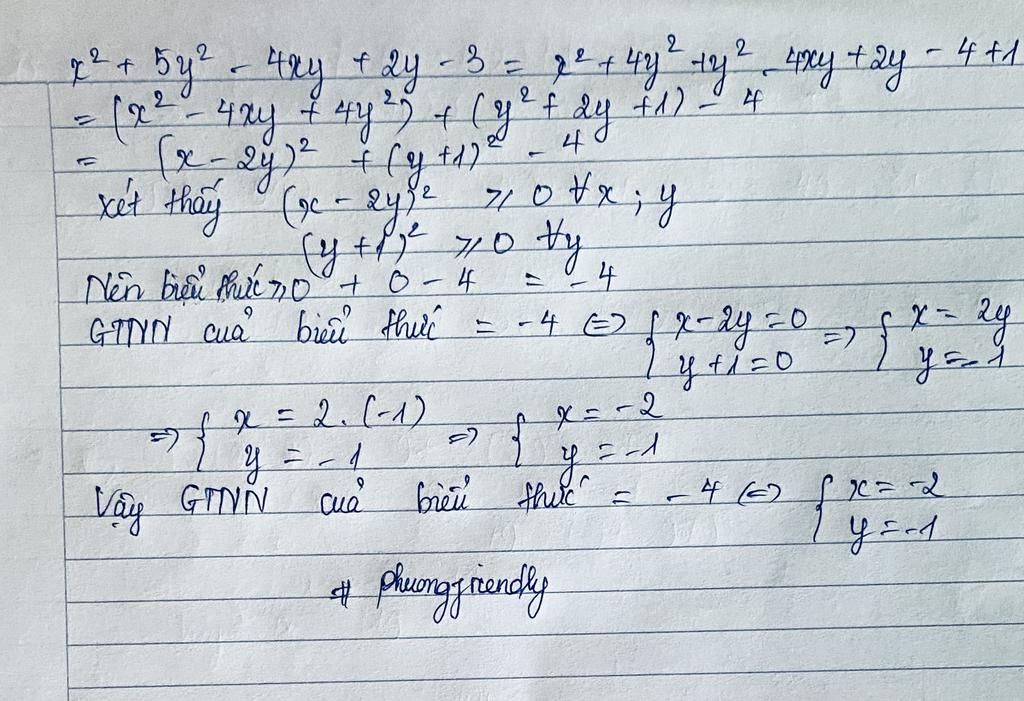 x² + 5y² - 4xy + 2y - 3 = x² + 4y² + y² - 4xy + 2y - 4 + 1
= (x² - 4xy + 4y²) + (y² + 2y + 1) - 4
= (x - 2y)² + (y + 1)² - 4
xét thấy (x - 2y)² ⩾ 0 ∀x ; y
(y + 1)² ⩾ 0 ∀y
Nên biểu thức ⩾ 0 + 0 - 4 = -4
GTNN cuả biểu thức = -4 <=> { x - 2y = 0 => { x = 2y
y + 1 = 0 y = -1
=> { x = 2 . (-1) => { x = -2
y = -1 y = -1
Vậy GTNN cuả biểu thức = -4 <=> { x = -2
y = -1
# phuongfriendly